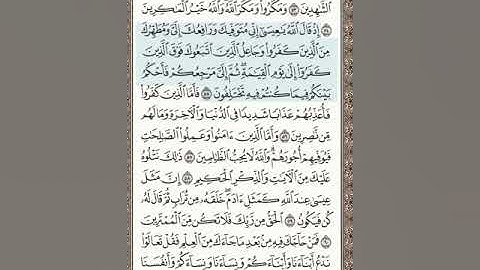 ٱلشَّٰهِدِينَ ٥٣ وَمَكَرُوا۟ وَمَكَرَ ٱللَّهُ وَٱللَّهُ خَيْرُ ٱلْمَٰكِرِينَ
٥٤ إِذْ قَالَ ٱللَّهُ يَٰعِيسَىٰٓ إِنِّى مُتَوَفِّيكَ وَرَافِعُكَ إِلَىَّ وَمُطَهِّرُكَ
مِنَ ٱلَّذِينَ كَفَرُوا۟ وَجَاعِلُ ٱلَّذِينَ ٱتَّبَعُوكَ فَوْقَ ٱلَّذِينَ
كَفَرُوٓا۟ إِلَىٰ يَوْمِ ٱلْقِيَٰمَةِ ۖ ثُمَّ إِلَىَّ مَرْجِعُكُمْ فَأَحْكُمُ
بَيْنَكُمْ فِيمَا كُنتُمْ فِيهِ تَخْتَلِفُونَ ٥٥ فَأَمَّا ٱلَّذِينَ كَفَرُوا۟
فَأُعَذِّبُهُمْ عَذَابًا شَدِيدًا فِى ٱلدُّنْيَا وَٱلْءَاخِرَةِ وَمَا لَهُم
مِّن نَّٰصِرِينَ ٥٦ وَأَمَّا ٱلَّذِينَ ءَامَنُوا۟ وَعَمِلُوا۟ ٱلصَّٰلِحَٰتِ
فَيُوَفِّيهِمْ أُجُورَهُمْ ۗ وَٱللَّهُ لَا يُحِبُّ ٱلظَّٰلِمِينَ ٥٧ ذَٰلِكَ نَتْلُوهُ
عَلَيْكَ مِنَ ٱلْءَايَٰتِ وَٱلذِّكْرِ ٱلْحَكِيمِ ٥٨ إِنَّ مَثَلَ
عِيسَىٰ عِندَ ٱللَّهِ كَمَثَلِ ءَادَمَ ۖ خَلَقَهُۥ مِن تُرَابٍ ثُمَّ قَالَ لَهُۥ
كُن فَيَكُونُ ٥٩ ٱلْحَقُّ مِن رَّبِّكَ فَلَا تَكُن مِّنَ ٱلْمُمْتَرِينَ
٦٠ فَمَنْ حَآجَّكَ فِيهِ مِنۢ بَعْدِ مَا جَآءَكَ مِنَ ٱلْعِلْمِ فَقُلْ تَعَالَوْا۟
نَدْعُ أَبْنَآءَنَا وَأَبْنَآءَكُمْ وَنِسَآءَنَا وَنِسَآءَكُمْ وَأَنفُسَنَا